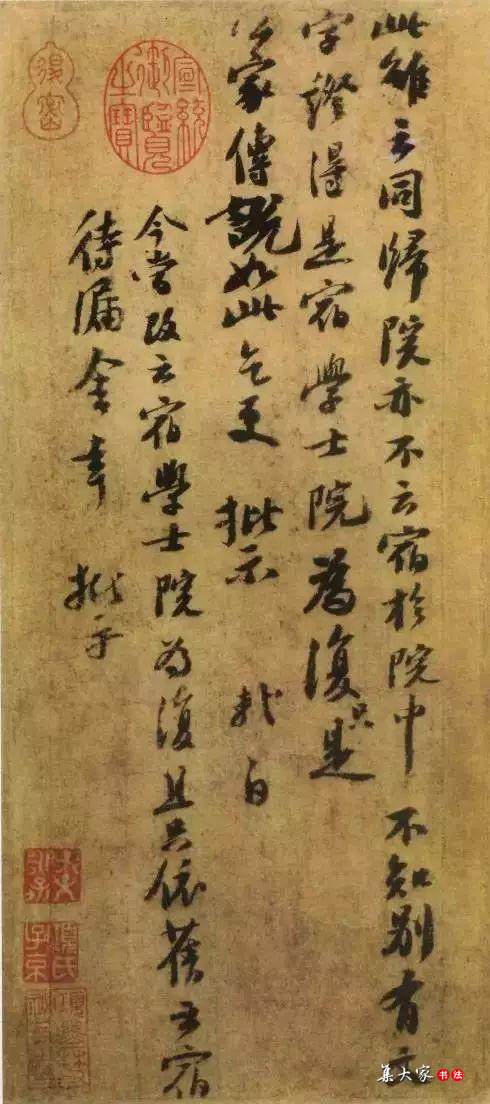 此雖云同歸院亦不云宿於院中不知別有文
字證得是宿學士院為復只是
家傳說如此乞更批示軾白
今當改云宿學士院為復且只依舊云宿
待漏舍幸批示
宣統御覽之寶
集大家书法